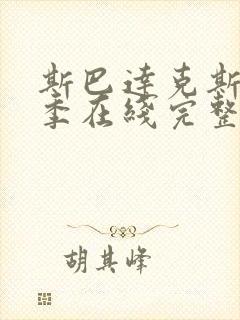 斯巴達克斯
季在綫完整
胡其峰